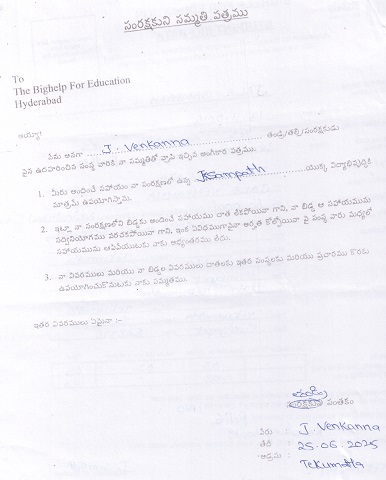 సంరక్షకుని సమ్మతి పత్రము
To
The Bighelp For Education
Hyderabad
అయ్యా!
నేను అనగా J. Venkanna తండ్రి/తల్లి/సంరక్షకుడు
పైన ఉదహరించిన సంస్థ వారికి నా సమ్మతితో వ్రాసి ఇచ్చిన అంగీకార పత్రము.
1. మీరు అందించే సహాయం నా సంరక్షణలో ఉన్న J. Sampath యొక్క విద్యాభివృద్ధికి
మాత్రమే ఉపయోగిస్తాను.
2. ఇట్లా నా సంరక్షణలోని బిడ్డకు అందించే సహాయము దాత లేకపోయినా గాని, నా బిడ్డ ఆ సహాయమును
సద్వినియోగము పరచకపోయినా గాని, ఇంక ఏవిధముగానైనా అర్హత కోల్పోయినా పై సంస్థ వారు మధ్యలో
సహాయమును ఆపివేయుటకు నాకు అభ్యంతరము లేదు.
3. నా వివరములు మరియు నా బిడ్డల వివరములు దాతలకు ఇతర సంస్థలకు మరియు ప్రచారము కొరకు
ఉపయోగించుకొనుటకు నాకు సమ్మతము.
ఇతర వివరములు ఏమైనా :-
తండ్రి
సంరక్షకుని సంతకం
పేరు : J. Venkanna
తేది : 25.06.2025
అడ్రసు :